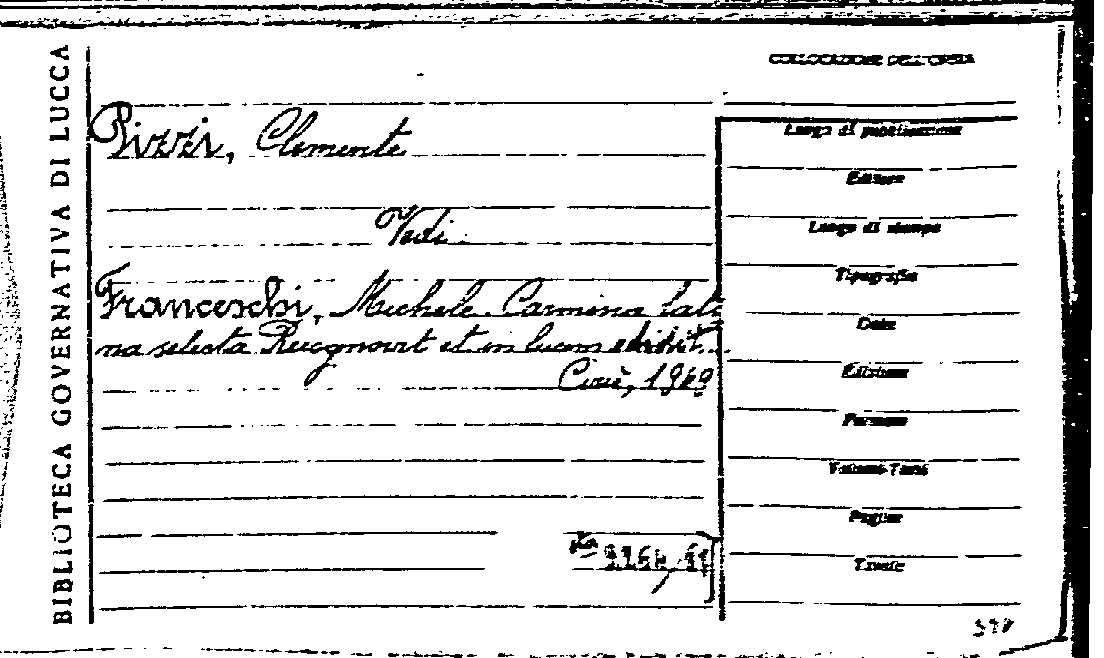 BIBLIOTECA GOVERNATIVA DI LUCCA
COLLOCAZIONE DELL'OPERA
Pizzi, Clemente
Vedi
Franceschi, Michele. Carmina lati
na selecta Recognovit et in lucem edidit...
Ciriè, 1969
Luogo di pubblicazione
Editore
Luogo di stampa
Tipografia
Data
Edizione
Formato
Volumi-Tomi
Pagine
Tavole